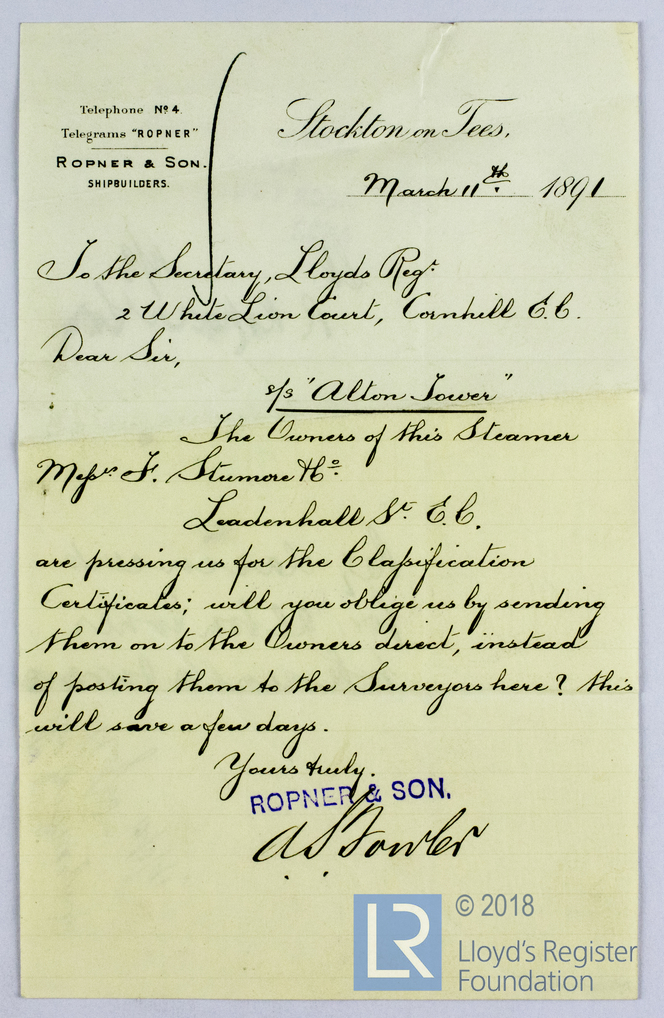 Telephone No 4.
Telegrams "ROPNER"
ROPNER & SON.
SHIPBUILDERS.
Stockton on Tees,
March 11th 1891
To the Secretary, Lloyds Regr
2 White Lion Court, Cornhill E.C.
Dear Sir,
s/s "Alton Tower"
The Owners of this Steamer
Messrs F. Stumore & Co.
Leadenhall St. E.C.
are pressing us for the Classification
Certificates; will you oblige us by sending
them on to the Owners direct, instead
of posting them to the Surveyors here? this
will save a few days.
Yours truly.
ROPNER & SON.
A S Fowler
LR
© 2018
Lloyd's Register
Foundation